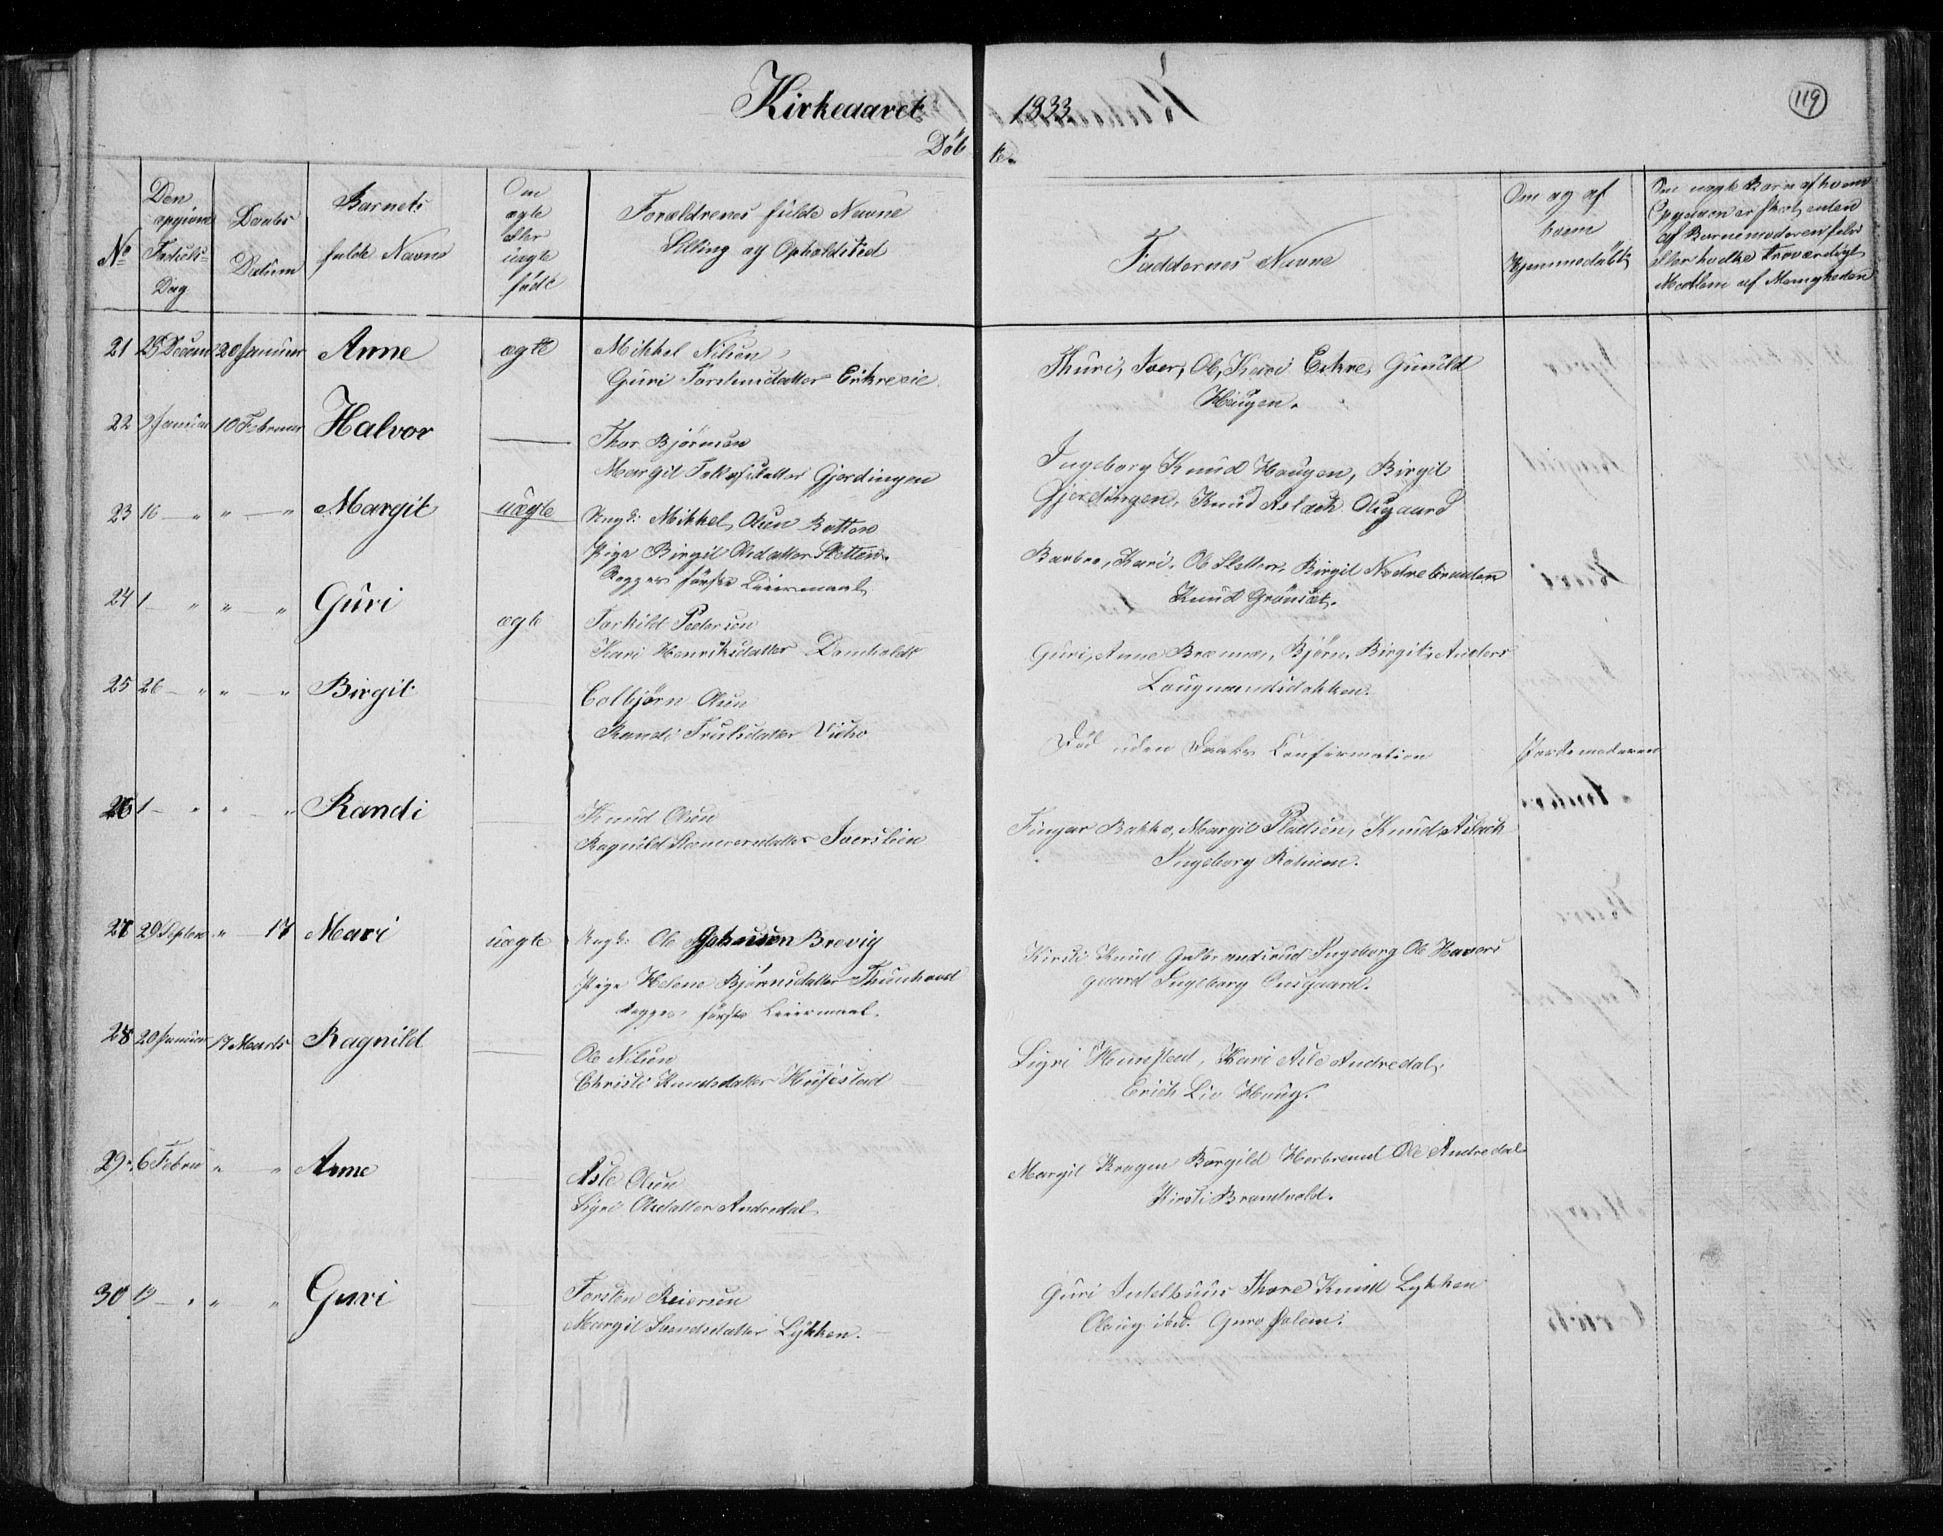 Kirkeaaret 1833
119
Döbte.
No
Den opgivne Födsels-Dag
Daabs Datum
Barnets fulde Navne
Om ægte eller uægte födt
Forældrenes fulde Navne Stilling og Opholdsted
Faddernes Navne
Om og af hvem Hjemmedöbt
Om uægte Barn af hvem Opgaven er skeet, enten af Barnemoderen selv eller hvilke troværdigt Medlem af Menigheden
21 25 Decem 20 Januar Anne ægte Mikkel Nilsen
Guri Torstensdatter Enkreeie
Thuri, Iver, Ole, Kari Enkre, Gunild
Haugen.
22 2 Januar 10 Februar Halvor — Thor Björnsen
Margit Gjerdingen
Ingeborg Knud Haugen, Birgit
Gjerdingen, Knud Aslach Ougaard
23 16 — " " — " Margit uægte Ungk: Mikkel Olsen
Pige Birgit Olsdatter Sletten.
Begges förste Leiermaal
Barbro, Kari, Ole Sletten, Birgit Nedrebraaten
Knud Grönset.
24 1 " " — " Guri ægte Torkild Pedersen
Kari Henriksdatter
Guri, Anne Bræmna, Björn, Birgit, Anders
25 26 — " " — " Birgit — Colbjörn Olsen
Randi Trulsdatter
Död uden Daabs Confirmation
Jordemoderen
26 1 — " " " Randi — Knud Olsen
Ragnild Iverslien
Bakko, Margit Knud Aslach
Ingeborg
27 29 Septem " — 17 Mari uægte Ungk: Ole Brevig
Pige Helene Björnsdatter Thunhovd
Begges förste Leiermaal.
Kirsti Knud Gulbrandsrud Ingeborg Ole Havers
gaard Ingeborg Ousgaard.
28 20 Januar 17 Marts Ragnild — Ole Nilsen
Christi Knudsdatter Husestad
Sigri Kari Asle Andredal,
Erich Liv Haug.
29. 6 Febru " — " Anne — Asle Olsen
Sigri Olsdatter Andredal
Margit Kragen Borgild Ole Andredal
Kirsti Brandvold.
30 19 — " " " Guri — Torsten Reiersen
Margit Svendsdatter Lykken.
Guri Intelhuus Thore Knud Lykken
Olaug ibid.